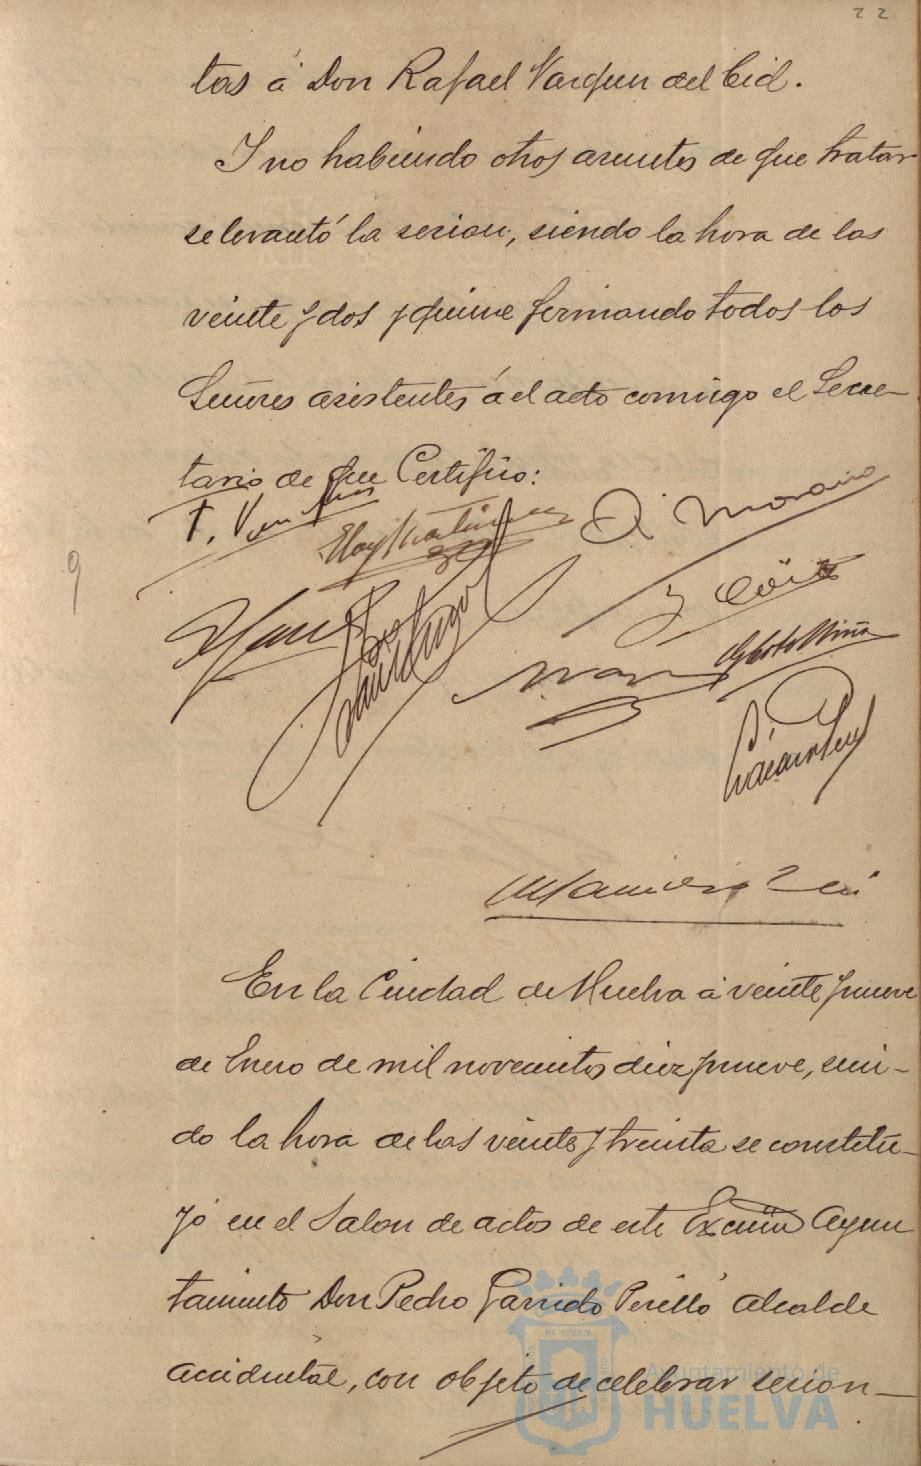 22
tas á Don Rafael Vazquez del Cid.
Y no habiendo otros asuntos de que tratar
se levantó la sesion, siendo la hora de las
veinte y dos y quince firmando todos los
Señores asistentes á el acto conmigo el Secre-
tario de que Certifico:
A. Moreno
9
En la Ciudad de Huelva á veinte y nueve
de Enero de mil novecientos diez y nueve, sien-
do la hora de las veinte y treinta se constitu-
yó en el Salon de actos de este Excmo Ayun
tamiento Don Pedro Garrido Perelló Alcalde
accidental, con objeto de celebrar sesion
Ayuntamiento de
HUELVA